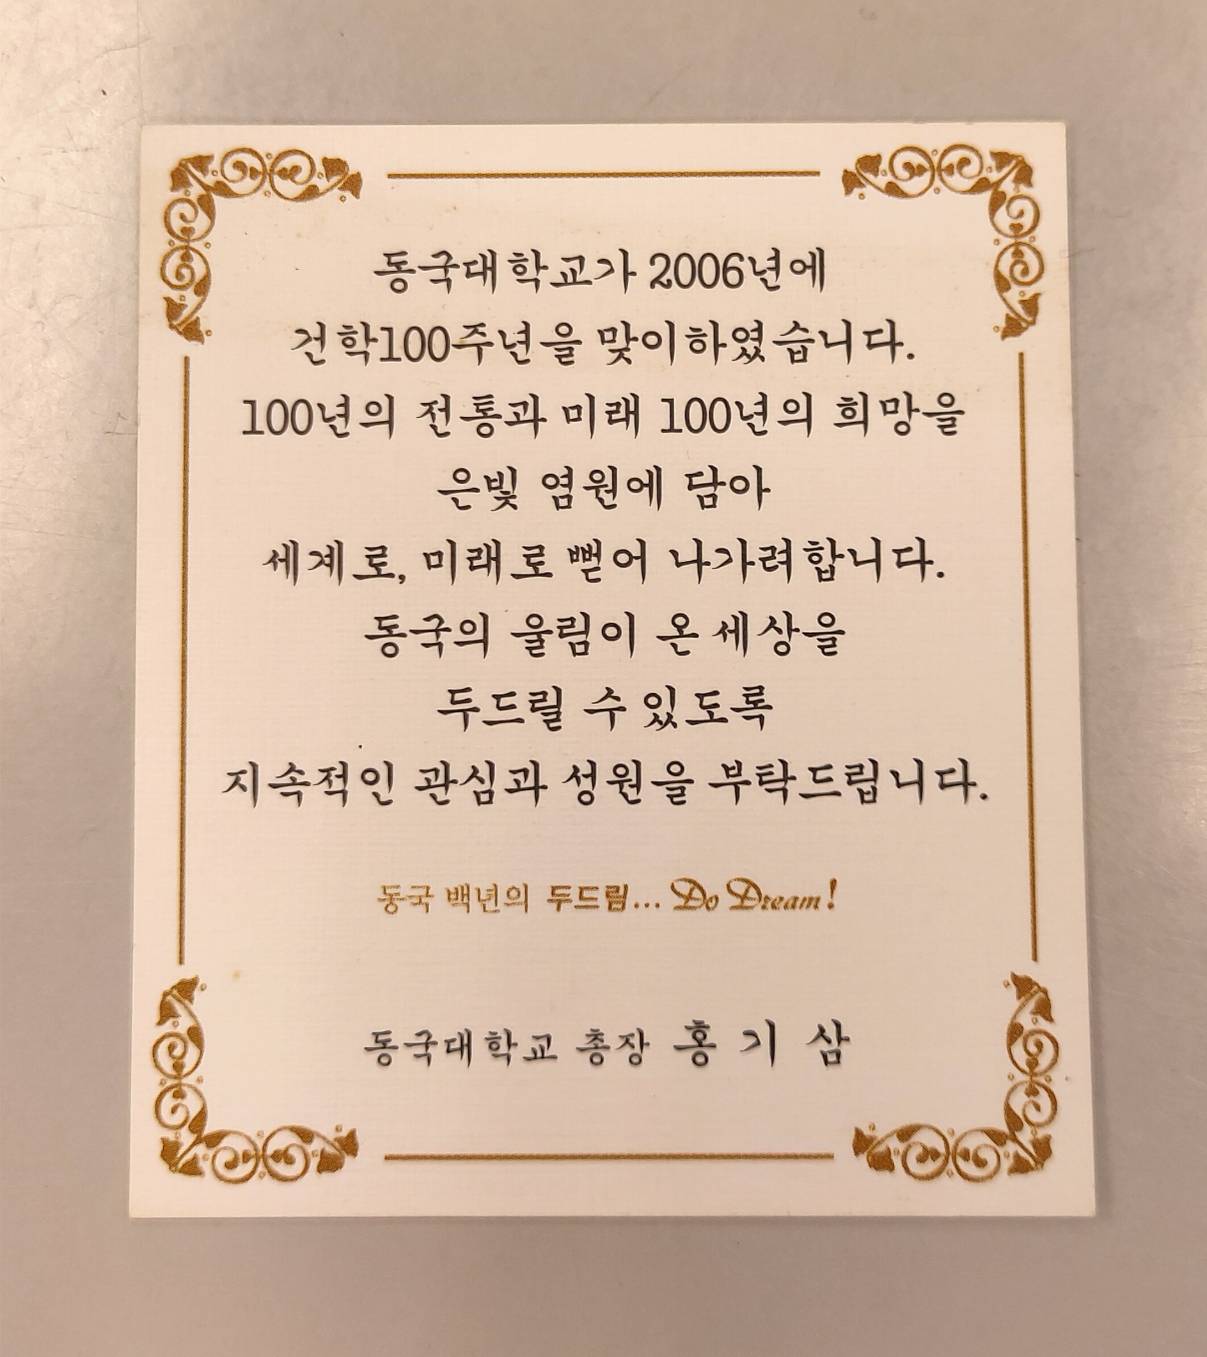 동국대학교가 2006년에
건학100주년을 맞이하였습니다.
100년의 전통과 미래 100년의 희망을
은빛 염원에 담아
세계로, 미래로 뻗어 나가려합니다.
동국의 울림이 온 세상을
두드릴 수 있도록
지속적인 관심과 성원을 부탁드립니다.
동국 백년의 두드림... Do Dream!
동국대학교 총장 홍 기 삼